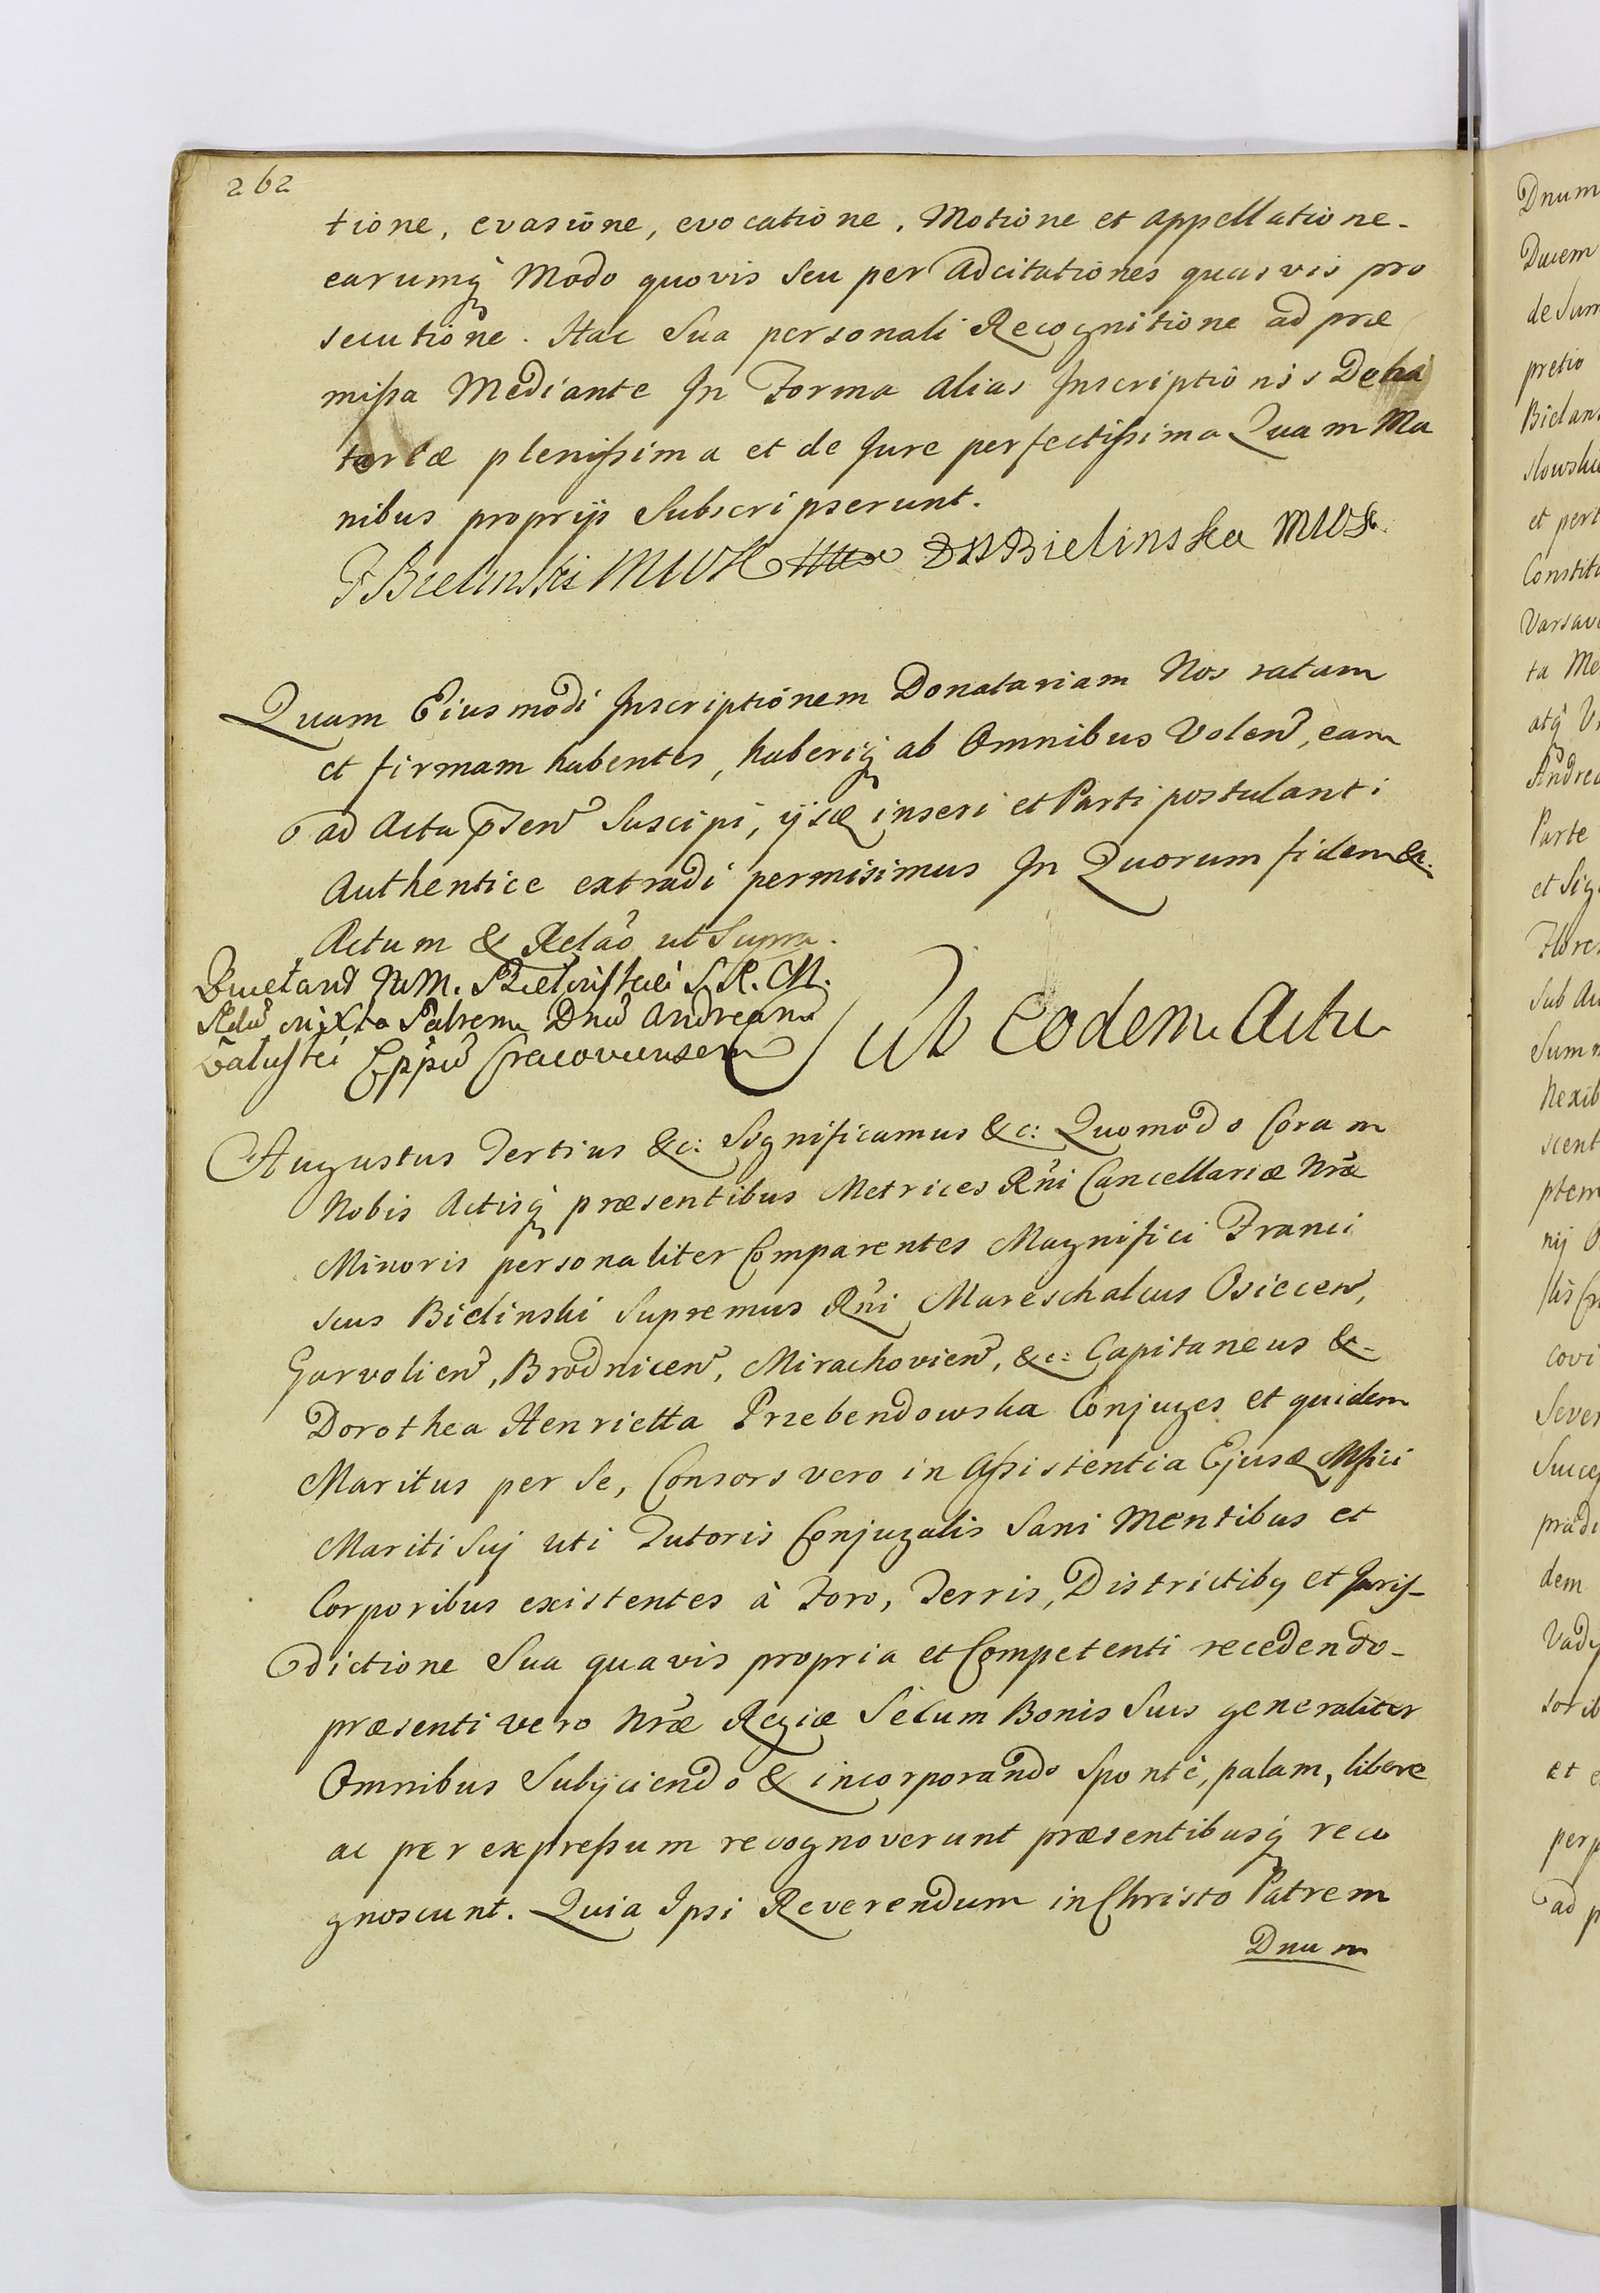 262
tione, evasione, evocatione, Motione et appellatione
earumq Modo quovis seu per Adcitationes quasvis pro
secutione. Hac Sua personali Recognitione ad præ
missa Mediante In Forma alias Inscriptionis Dona
tariæ plenissima et de Jure perfectissima Quam Ma
nibus propriis Subscripserunt.
F Bielinski MWK DH Bielinska MWK.
Quam Eiusmodi Inscriptionem Donatariam Nos ratam
et firmam habentes, haberiq ab Omnibus Volen, eam
ad Acta Suscipi, inseri et Parti postulanti
Authentice extradi permisimus In Quorum fidem &c.
Actum & ut Supra.
S. R. M.
Patrem Dnu Andream
Cracoviensem
Sub Eodem Actu
Augustus Tertius &c: Significamus &c: Quomodo Coram
Nobis Actisq præsentibus Metrices Rni Cancellariæ Nræ
Minoris personaliter Comparentes Magnifici Franci
scus Bielinski Supremus Rni Mareschalcus Osiecen,
Garvolien, Brodnicen, Mirachovien, &c: Capitaneus &
Dorothea Henrietta Przebendowska Conjuges et quidem
Maritus per Se, Consors vero in Assistentia Ejusd
Mariti Suj uti Tutoris Conjugalis Sani Mentibus et
Corporibus existentes à Foro, Terris, Districtibq et Juris-
dictione Sua quavis propria et Competenti recedendo
præsenti vero Nræ Regiæ Secum Bonis Suis generaliter
Omnibus Subijciendo & incorporando Sponte, palam, libere
ac per expressum recognoverunt præsentibusq reco
gnoscunt. Quia Ipsi Reverendum in Christo Patrem
Dnum
Dnum
Ducem
de Sum
pretio
Bielans
slowska
et pert
Constit
Varsav
ta Me
atq
Andrea
Parte
et Sig
Flore
Sub Au
Summ
Nexib
scent
ptem
nij
covi
Sever
Succe
prædi
dem
Vady
sorib
et
perp
ad p